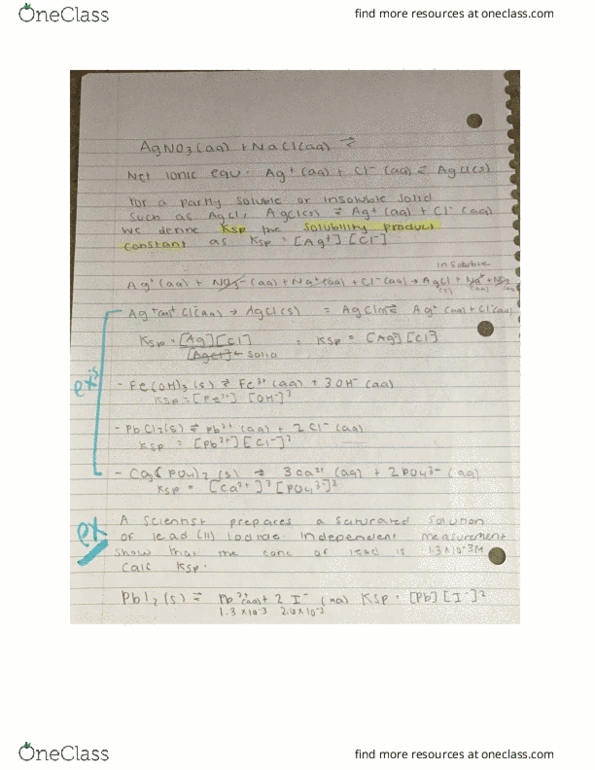 OneClass
find more resources at oneclass.com
AgNO3(aq) + NaCl(aq) ⇌
Net ionic equ. Ag⁺(aq) + Cl⁻(aq) ⇌ AgCl(s)
For a partly soluble or insoluble solid
such as AgCl, AgCl(s) ⇌ Ag⁺(aq) + Cl⁻(aq)
we define Ksp the solubility product
constant as Ksp = [Ag⁺][Cl⁻]
insoluble
Ag⁺(aq) + NO3⁻(aq) + Na⁺(aq) + Cl⁻(aq) → AgCl(s) + Na⁺(aq) + NO3
→ AgCl(s) = AgCl(s) ⇌ Ag⁺(aq) + Cl⁻(aq)
Ksp = [Ag][Cl] = Ksp = [Ag][Cl]
[AgCl] ← solid
ex's
- Fe(OH)3(s) ⇌ Fe³⁺(aq) + 3OH⁻(aq)
Ksp = [Fe³⁺][OH⁻]³
- PbCl2(s) ⇌ Pb²⁺(aq) + 2Cl⁻(aq)
Ksp = [Pb²⁺][Cl⁻]²
- Ca3(PO4)2(s) ⇌ 3Ca²⁺(aq) + 2PO4³⁻(aq)
Ksp = [Ca²⁺]³[PO4³⁻]²
ex
A scientist prepares a saturated solution
of lead (II) iodide. Independent measurement
show that the conc of lead is 1.3 x 10⁻³ M
calc Ksp.
PbI2(s) ⇌ Pb²⁺(aq) + 2I⁻(aq) Ksp = [Pb][I⁻]²
1.3 x 10⁻³ 2.6 x 10⁻³
OneClass
find more resources at oneclass.com